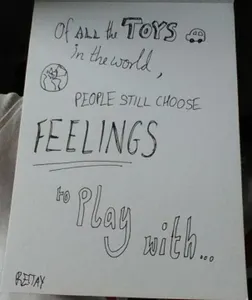 Of ALL the TOYS
in the world,
PEOPLE STILL CHOOSE
FEELINGS
to Play
with...